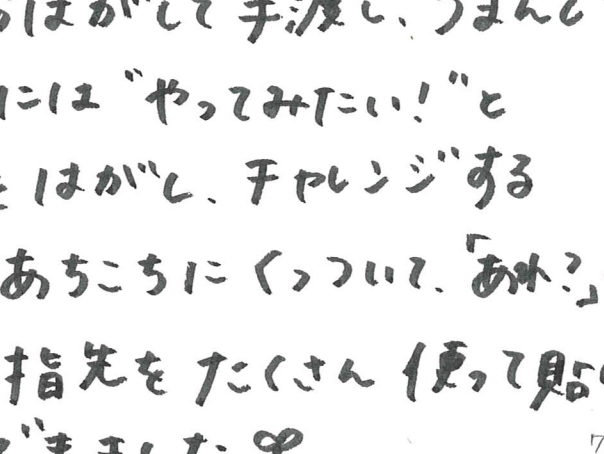 はがして手渡し、うまく
には"やってみたい!"と
をはがし、チャレンジする
あちこちにくっついて、「あれ?」
指先をたくさん使って貼
できました
7